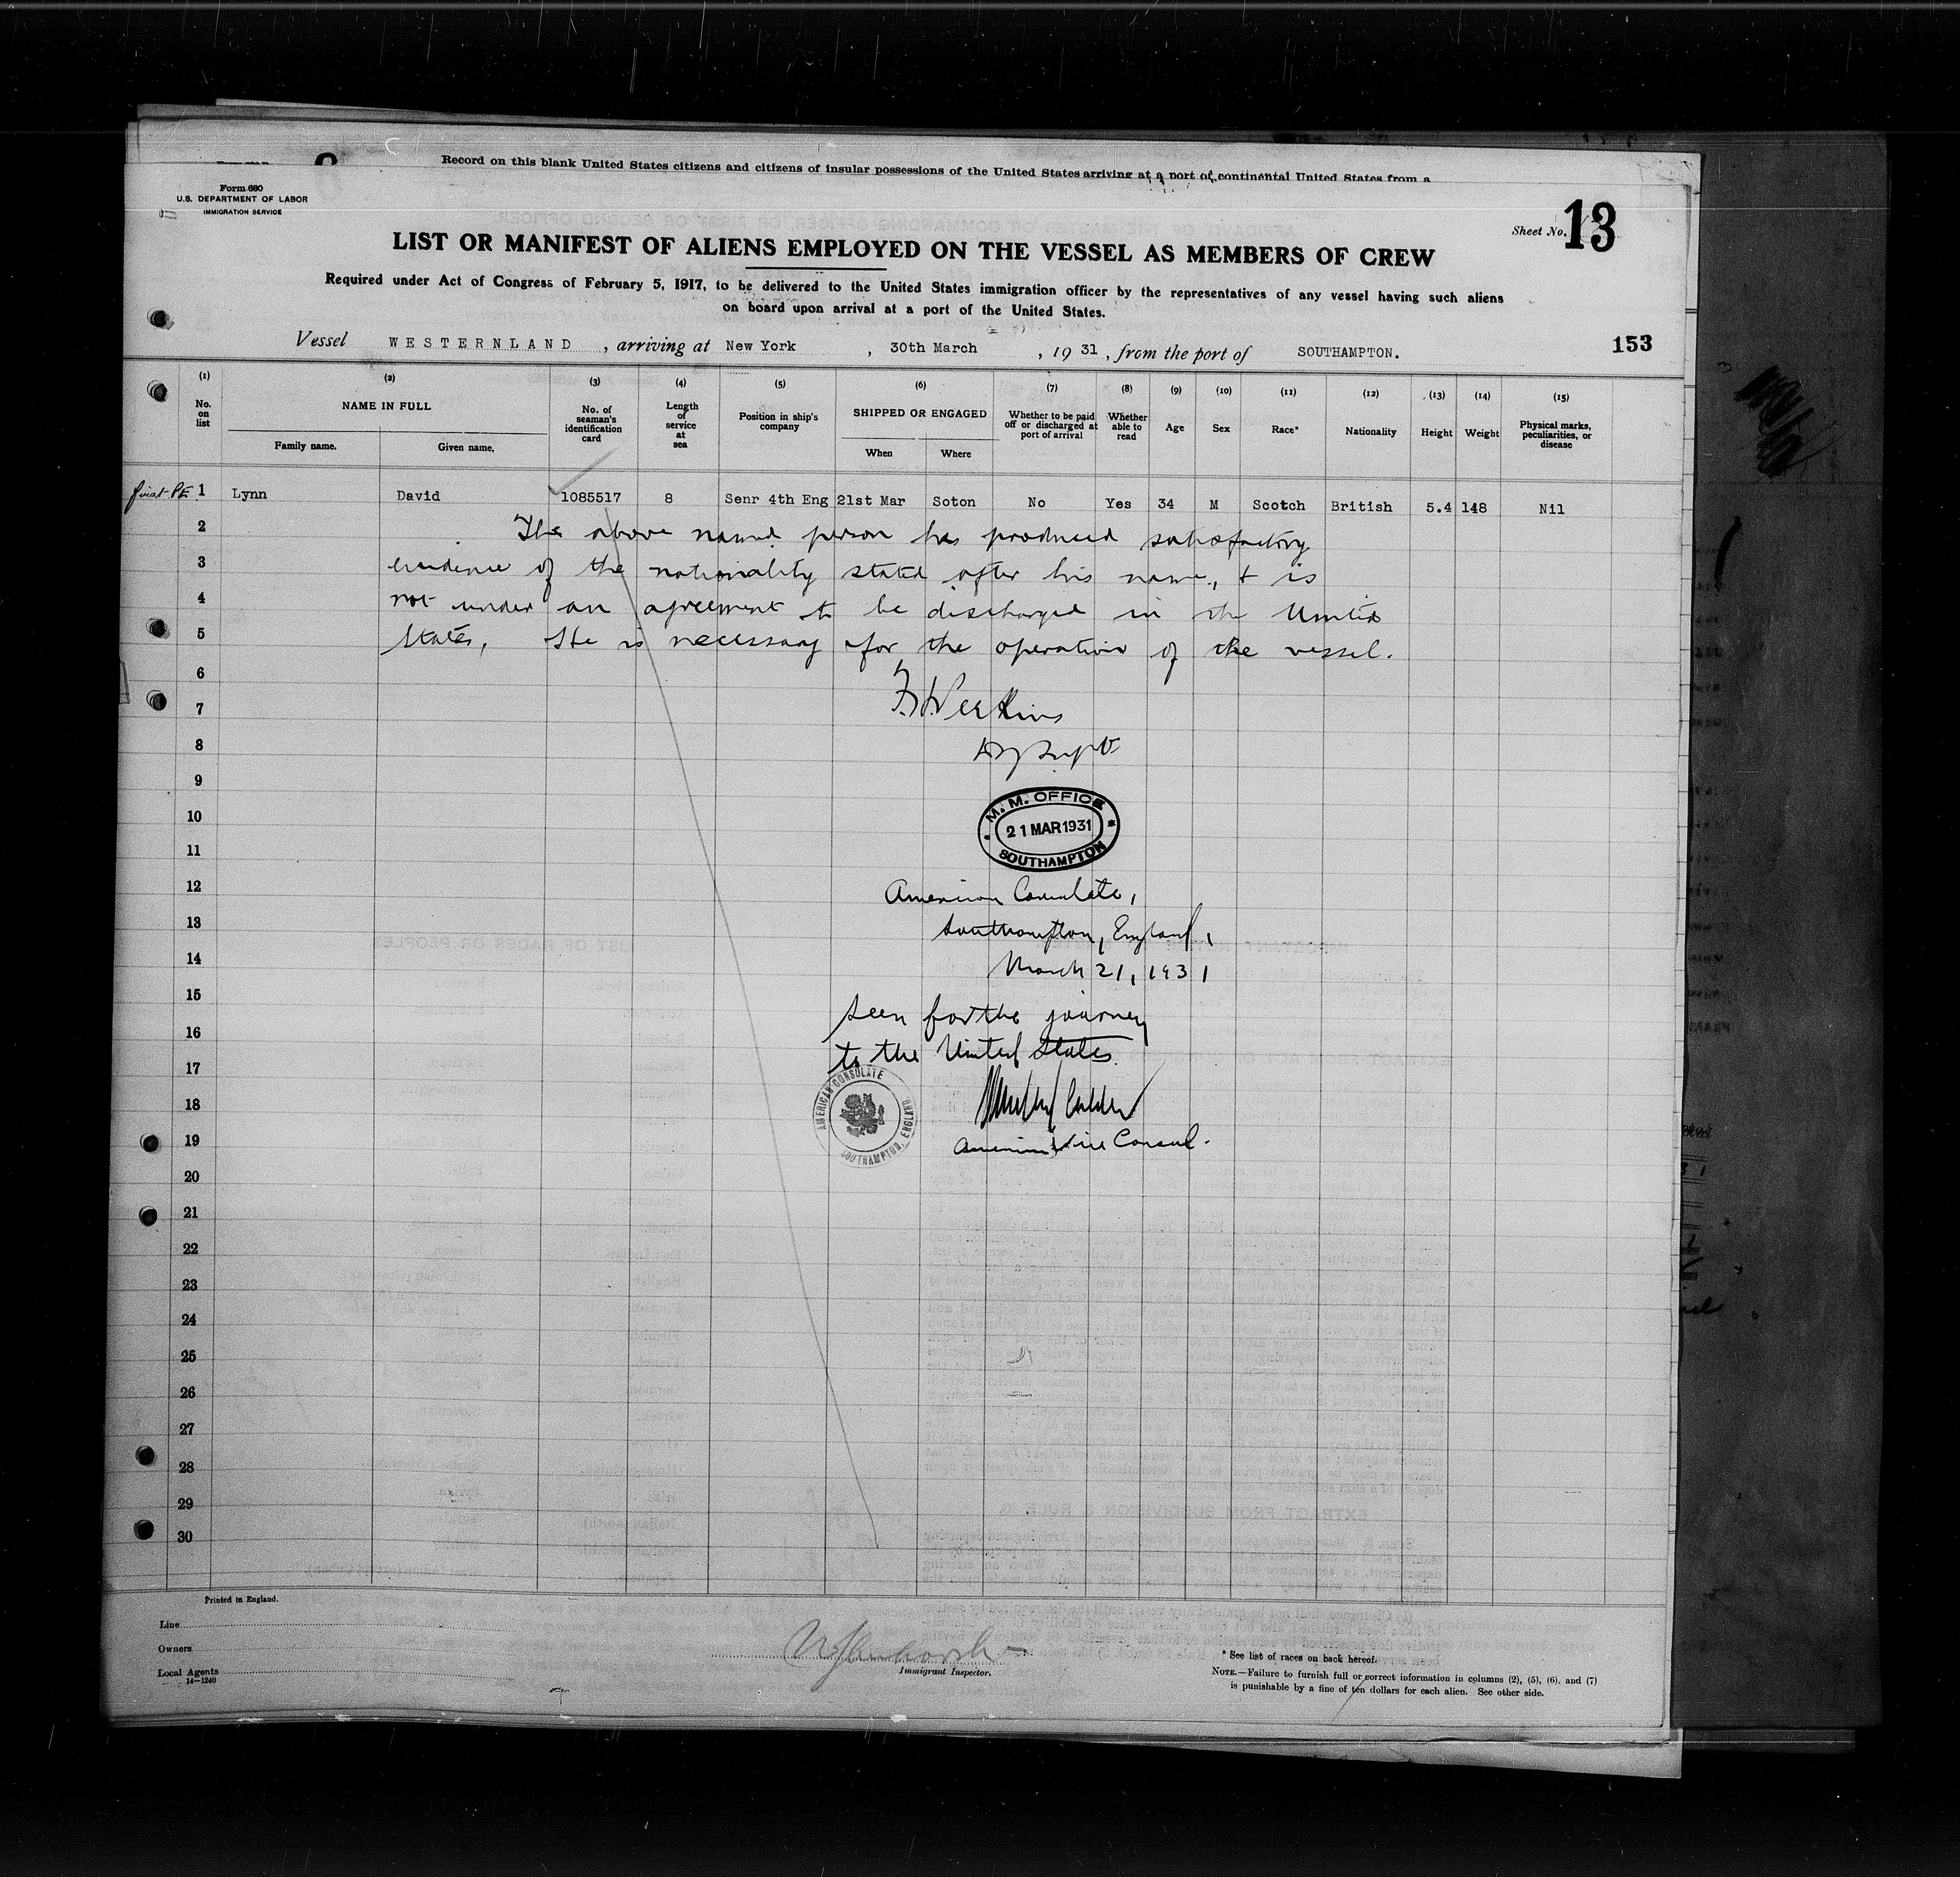 Record on this blank United States citizens and citizens of insular possessions of the United States arriving at a port of continental United States from a
Form 680
U.S. DEPARTMENT OF LABOR
IMMIGRATION SERVICE
Sheet No. 13
LIST OR MANIFEST OF ALIENS EMPLOYED ON THE VESSEL AS MEMBERS OF CREW
Required under Act of Congress of February 5, 1917, to be delivered to the United States immigration officer by the representatives of any vessel having such aliens
on board upon arrival at a port of the United States.
Vessel WESTERNLAND, arriving at New York, 30th March, 1931, from the port of SOUTHAMPTON.
153
(1) (2) (3) (4) (5) (6) (7) (8) (9) (10) (11) (12) (13) (14) (15)
No. on list
NAME IN FULL
Family name. Given name.
No. of seaman's identification card
Length of service at sea
Position in ship's company
SHIPPED OR ENGAGED
When Where
Whether to be paid off or discharged at port of arrival
Whether able to read
Age
Sex
Race*
Nationality
Height
Weight
Physical marks, peculiarities, or disease
1 Lynn David 1085517 8 Senr 4th Eng 21st Mar Soton No Yes 34 M Scotch British 5.4 148 Nil
2 The above named person has produced satisfactory
3 evidence of the nationality stated after his name, & is
4 not under an agreement to be discharged in the United
5 States. He is necessary for the operation of the vessel.
6
7 Perkins
8 Dy Supt
9
10 M. M. OFFICE
21 MAR 1931
11 SOUTHAMPTON
12 American Consulate,
13 Southampton, England,
14 March 21, 1931
15 Seen for the journey
16 to the United States.
17
AMERICAN CONSULATE
SOUTHAMPTON, ENGLAND
18
19 American Vice Consul.
20
21
22
23
24
25
26
27
28
29
30
Printed in England.
Line
Owners
Local Agents
14-1240
Immigrant Inspector.
* See list of races on back hereof.
NOTE.—Failure to furnish full or correct information in columns (2), (5), (6), and (7)
is punishable by a fine of ten dollars for each alien. See other side.